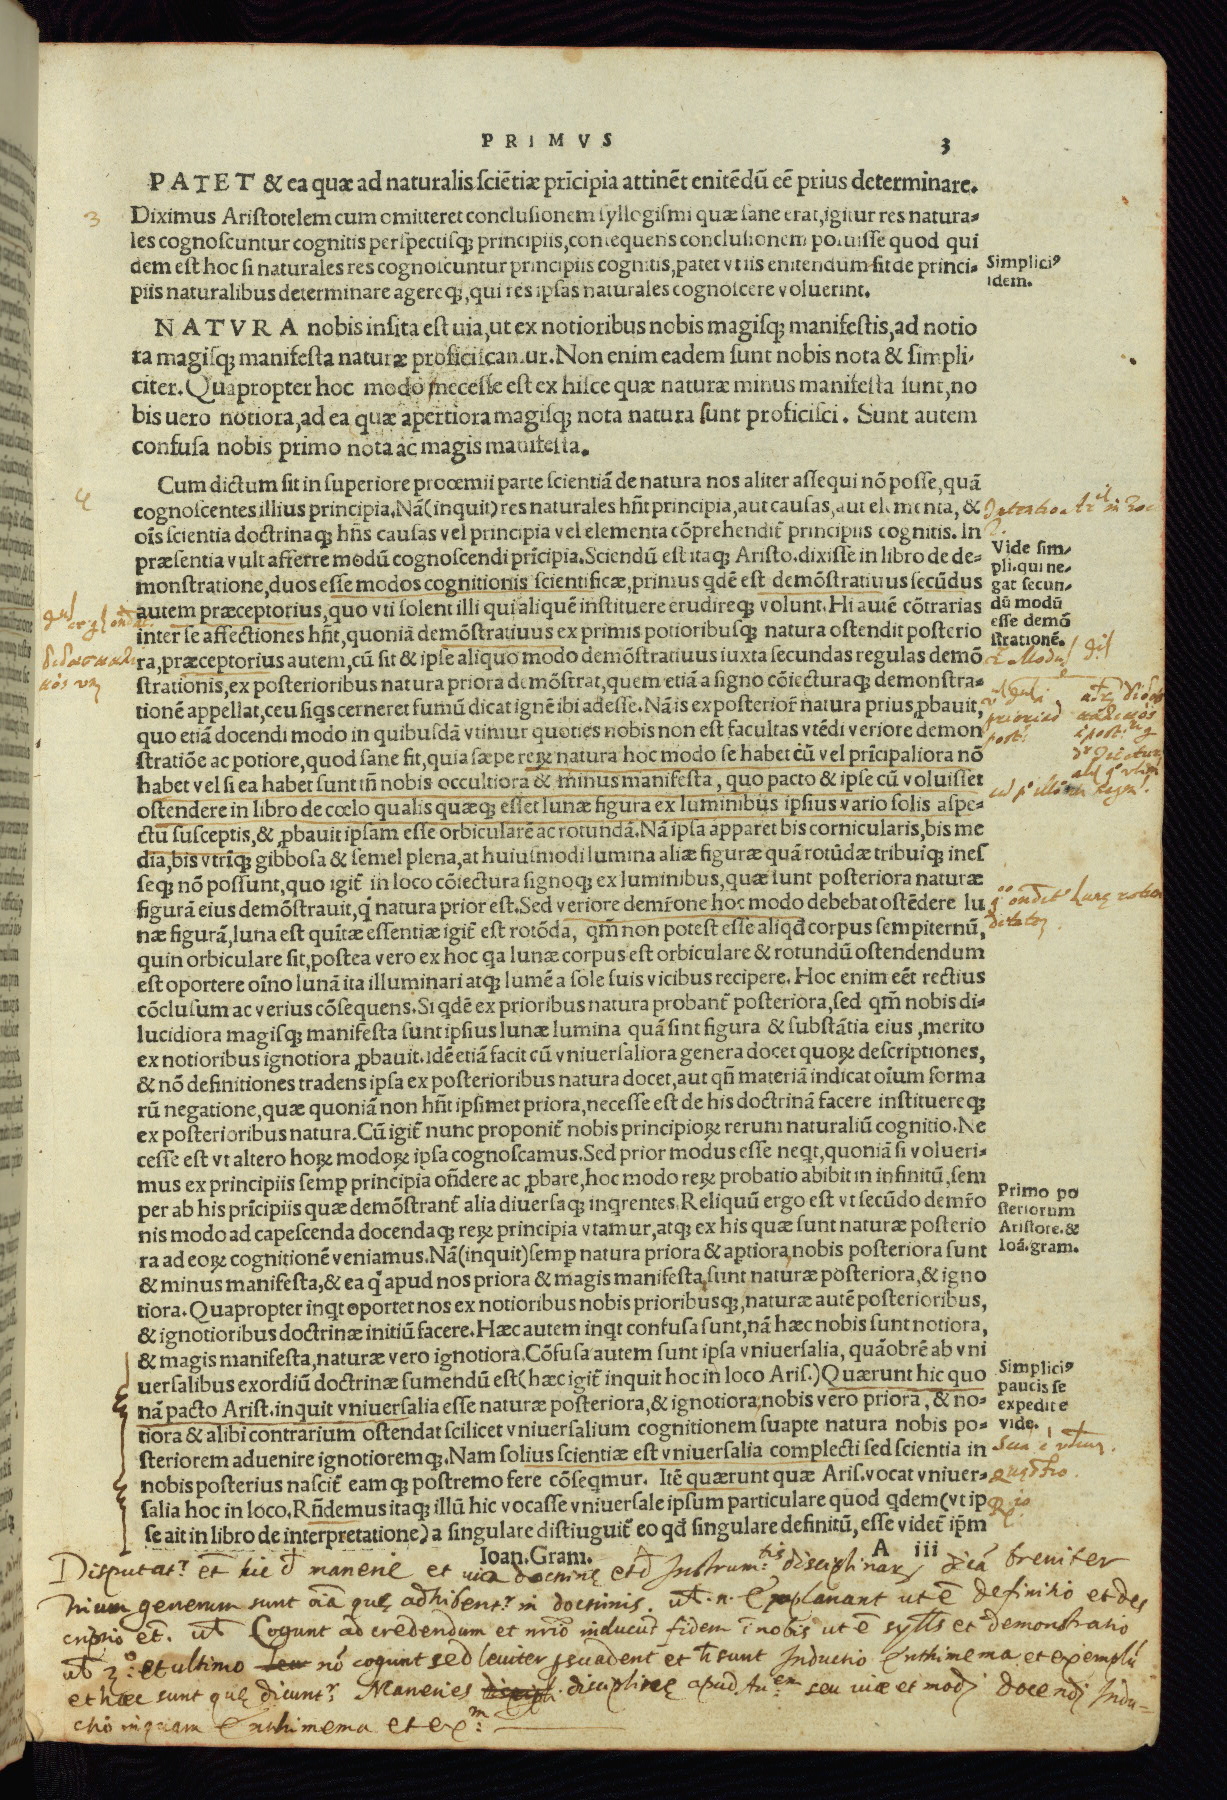 PRIMVS 3
PATET & ea quæ ad naturalis sciẽtiæ prĩcipia attinẽt enitẽdũ eẽ prius determinare.
3
Diximus Aristotelem cum omitteret conclusionem syllogismi quæ sane erat, igitur res natura-
les cognoscuntur cognitis perspectisq; principiis, consequens conclusionem posuisse quod qui
dem est hoc si naturales res cognoscuntur principiis cognitis, patet vt iis enitendum sit de princi-
piis naturalibus determinare agereq;, qui res ipsas naturales cognoscere voluerint.
Simplici9
idem.
NATVRA nobis insita est uia, ut ex notioribus nobis magisq; manifestis, ad notio
ra magisq; manifesta naturæ proficiscamur. Non enim eadem sunt nobis nota & simpli-
citer. Quapropter hoc modo necesse est ex hisce quæ naturæ minus manifesta sunt, no
bis uero notiora, ad ea quæ apertiora magisq; nota natura sunt proficisci. Sunt autem
confusa nobis primo nota ac magis manifesta.
Cum dictum sit in superiore prooemii parte scientiã de natura nos aliter assequi nõ posse, quã
cognoscentes illius principia. Nã (inquit) res naturales hñt principia, aut causas, aut elementa, &
oĩs scientia doctrinaq; hñs causas vel principia vel elementa cõprehendit̃ principiis cognitis. In
præsentia vult afferre modũ cognoscendi prĩcipia. Sciendũ est itaq; Aristo. dixisse in libro de de-
monstratione, duos esse modos cognitionis scientificæ, primus qdẽ est demõstratiuus secũdus
autem præceptorius, quo vti solent illi qui aliquẽ instituere erudireq; volunt. Hi autẽ cõtrarias
inter se affectiones hñt, quoniã demõstratiuus ex primis potioribusq; natura ostendit posterio
ra, præceptorius autem, cũ sit & ipse aliquo modo demõstratiuus iuxta secundas regulas demõ
strationis, ex posterioribus natura priora demõstrat, quem etiã a signo cõiecturaq; demonstra-
tionẽ appellat, ceu siqs cerneret fumũ dicat ignẽ ibi adesse. Nã is ex posterior̃ natura prius ꝓbauit,
quo etiã docendi modo in quibusdã vtimur quoties nobis non est facultas vtẽdi veriore demon
stratiõe ac potiore, quod sane fit, quia sæpe reꝝ natura hoc modo se habet cũ vel prĩcipaliora nõ
habet vel si ea habet sunt tñ nobis occultiora & minus manifesta, quo pacto & ipse cũ voluisset
ostendere in libro de cœlo qualis quæq; esset lunæ figura ex luminibus ipsius vario solis aspe-
ctũ susceptis, & ꝓbauit ipsam esse orbicularẽ ac rotundã. Nã ipsa apparet bis cornicularis, bis me
dia, bis vtrĩq; gibbosa & semel plena, at huiusmodi lumina aliæ figuræ quã rotũdæ tribui q; ines
seq; nõ possunt, quo igit̃ in loco cõiectura signoq; ex luminibus, quæ sunt posteriora naturæ
figurã eius demõstrauit, q̃ natura prior est. Sed veriore demr̃one hoc modo debebat ostẽdere lu
næ figurã, luna est quĩtæ essentiæ igit̃ est rotõda, qm̃ non potest esse aliqd̃ corpus sempiternũ,
quin orbiculare sit, postea vero ex hoc qa lunæ corpus est orbiculare & rotundũ ostendendum
est oportere oĩno lunã ita illuminari atq; lumẽ a sole suis vicibus recipere. Hoc enim eẽt rectius
cõclusum ac verius cõsequens. Si qdẽ ex prioribus natura probant̃ posteriora, sed qm̃ nobis di-
lucidiora magisq; manifesta sunt ipsius lunæ lumina quã sint figura & substãtia eius, merito
ex notioribus ignotiora ꝓbauit. Idẽ etiã facit cũ vniuersaliora genera docet quoꝝ descriptiones,
& nõ definitiones tradens ipsa ex posterioribus natura docet, aut qñ materiã indicat oĩum forma
rũ negatione, quæ quoniã non hñt ipsimet priora, necesse est de his doctrinã facere instituereq;
ex posterioribus natura. Cũ igit̃ nunc proponit̃ nobis principioꝝ rerum naturaliũ cognitio. Ne
cesse est vt altero hoꝝ modoꝝ ipsa cognoscamus. Sed prior modus esse neqt, quoniã si volueri-
mus ex principiis semꝑ principia oñdere ac ꝓbare, hoc modo reꝝ probatio abibit in infinitũ, sem
per ab his prĩcipiis quæ demõstrant̃ alia diuersaq; inqrentes. Reliquũ ergo est vt secũdo demr̃o
nis modo ad capescenda docendaq; reꝝ principia vtamur, atq; ex his quæ sunt naturæ posterio
ra ad eoꝝ cognitionẽ veniamus. Nã (inquit) semꝑ natura priora & aꝑtiora, nobis posteriora sunt
& minus manifesta, & ea q̃ apud nos priora & magis manifesta, sunt naturæ posteriora, & igno
tiora. Quapropter inqt oportet nos ex notioribus nobis prioribusq;, naturæ autẽ posterioribus,
& ignotioribus doctrinæ initiũ facere. Hæc autem inqt confusa sunt, nã hæc nobis sunt notiora,
& magis manifesta, naturæ vero ignotiora. Cõfusa autem sunt ipsa vniuersalia, quãobrẽ ab vni
uersalibus exordiũ doctrinæ sumendũ est (hæc igit̃ inquit hoc in loco Aris.) Quærunt hic quo
nã pacto Arist. inquit vniuersalia esse naturæ posteriora, & ignotiora, nobis vero priora, & no-
tiora & alibi contrarium ostendat scilicet vniuersalium cognitionem suapte natura nobis po-
steriorem aduenire ignotioremq;. Nam solius scientiæ est vniuersalia complecti sed scientia in
nobis posterius nascit̃ eamq; postremo fere cõseqmur. Itẽ quærunt quæ Aris. vocat vniuer-
salia hoc in loco. Rñdemus itaq; illũ hic vocasse vniuersale ipsum particulare quod qdem (vt ip
se ait in libro de interpretatione) a singulare distiuguit̃ eo qd̃ singulare definitũ, esse videt̃ ip̃m
Vide sim-
pli. qui ne-
gat secun-
dũ modũ
esse demõ
strationẽ.
Primo po
steriorum
Aristote. &
Ioã. gram.
Simplici9
paucis se
expedit e
vide.
Ioan. Gram. A iii
Disputat.r et hic d̃ manerie et uia doctrine et d̃ Instrum.tis disciplinarum breuiter
Trium generum sunt oĩa que adhibent.r in doctrinis. Explanant ut ẽ definitio et des
criptio et. Cogunt ad credendum et inducunt fidem ĩ nobis ut ẽ sylls et demonstratio
et ultimo nõ cogunt sed leuiter suadent et sunt Inductio Enthimema et exemplũ
et hæc sunt que dicunt.r Maneries discipline apud seu uiæ et modi docendi Indu-
ctio inquam Enthimema et ex.m